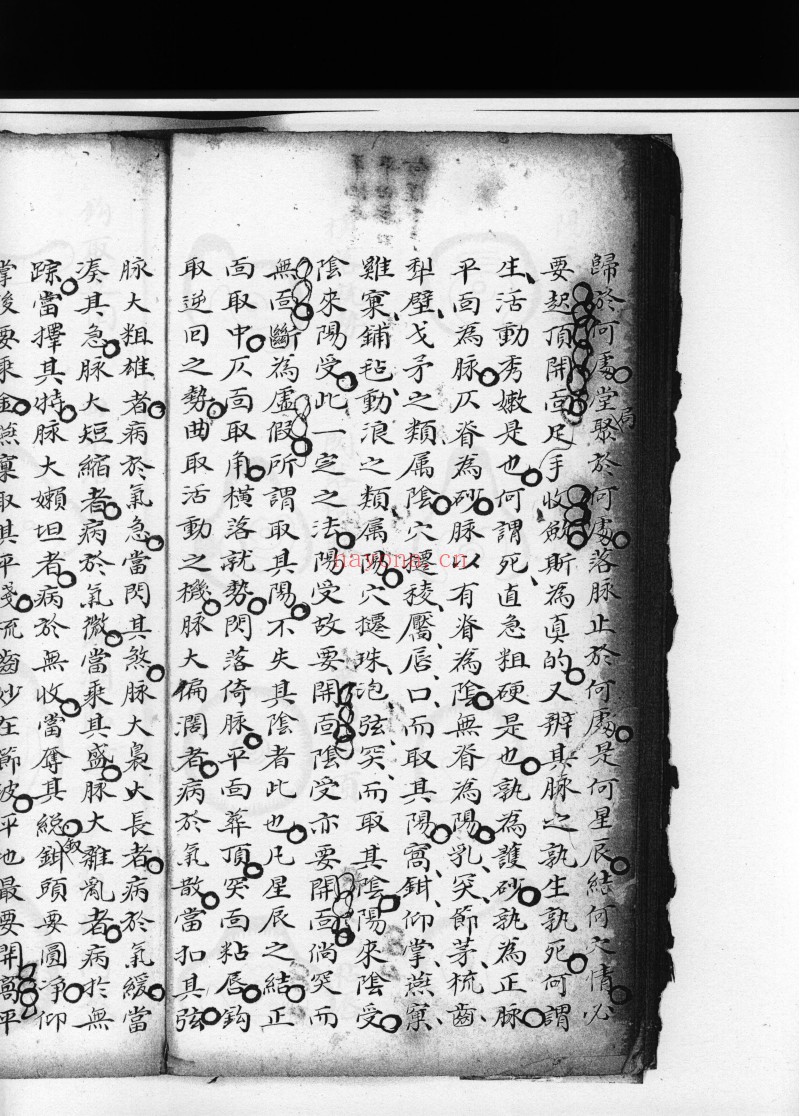 歸於何處堂聚於何處落脉止於何處是何星辰結何穴情必
局
要起頂開面足手收斂斯為真的又辨其脉之孰生孰死何謂
生活動秀嫩是也何謂死直急粗硬是也孰為護砂孰為正脉
平面為脉仄脊為砂脉以有脊為陰無脊為陽乳突節茅梳齒
犁壁戈矛之類属陰穴摆稜靨唇口而取其陽窩鉗仰掌燕窠
雞窠鋪毡動浪之類属陽穴摆珠泡弦突而取其陰陽來陰受
陰來陽受此一定之法陽受故要開面陰受亦要開面倘突而
無面斷為虚假所謂取其陽不失其陰者此也凡星辰之結正
面取中仄面取角橫落就勢閃落倚脉平面葬頂突面粘唇鈎
取逆回之勢曲取活動之機脉大偏濶者病於氣散當扣其弦
脉大粗雄者病於氣急當閃其煞脉大裊大長者病於氣緩當
湊其急脉大短縮者病於氣微當乘其盛脉大雜亂者病於無
踪當擇其特脉大嬾坦者病於無收當奪其総鉗頭要圓净仰
釵
掌後要乘金燕窠取其平淺流齒妙在節波平也最要開窩平
hayona.cn